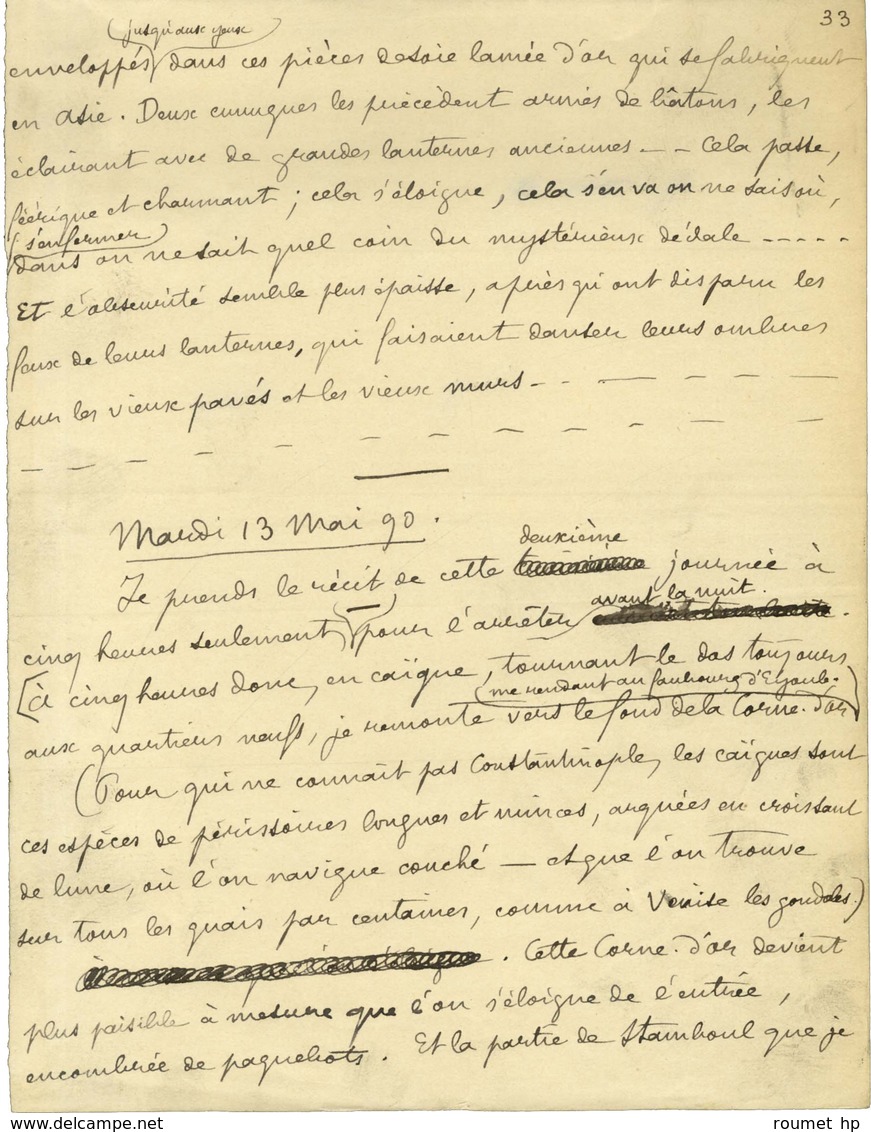 33
(jusqu'aux yeux)
enveloppés dans ces pièces de soie lamée d'or qui se fabriquent
en Asie. Deux eunuques les précèdent armés de bâtons, les
éclairant avec de grandes lanternes anciennes - - Cela passe,
féérique et charmant ; cela s'éloigne, cela s'en va on ne sait où,
(s'enfermer)
dans on ne sait quel coin du mystérieux dédale - - - - -
Et l'obscurité semble plus épaisse, après qu'ont disparu les
feux de leurs lanternes, qui faisaient danser leurs ombres
sur les vieux pavés et les vieux murs - - - - - -
- - - - - - - - - - -
Mardi 13 Mai 90.
deuxième
Je prends le récit de cette journée à
avant la nuit.
cinq heures seulement) - (pour l'arrêter .
[à cinq heures donc, en caïque, tournant le dos toujours
(me rendant au faubourg d'Eyoub.)
aux quartiers neufs, je remonte vers le fond de la Corne-d'or
(Pour qui ne connaît pas Constantinople, les caïques sont
ces espèces de périssoires longues et minces, arquées en croissant
de lune, où l'on navigue couché — et que l'on trouve
sur tous les quais par centaines, comme à Venise les gondoles.)
. Cette Corne-d'or devient
plus paisible à mesure que l'on s'éloigne de l'entrée,
encombrée de paquebots. Et la partie de Stamboul que je
roumet hp